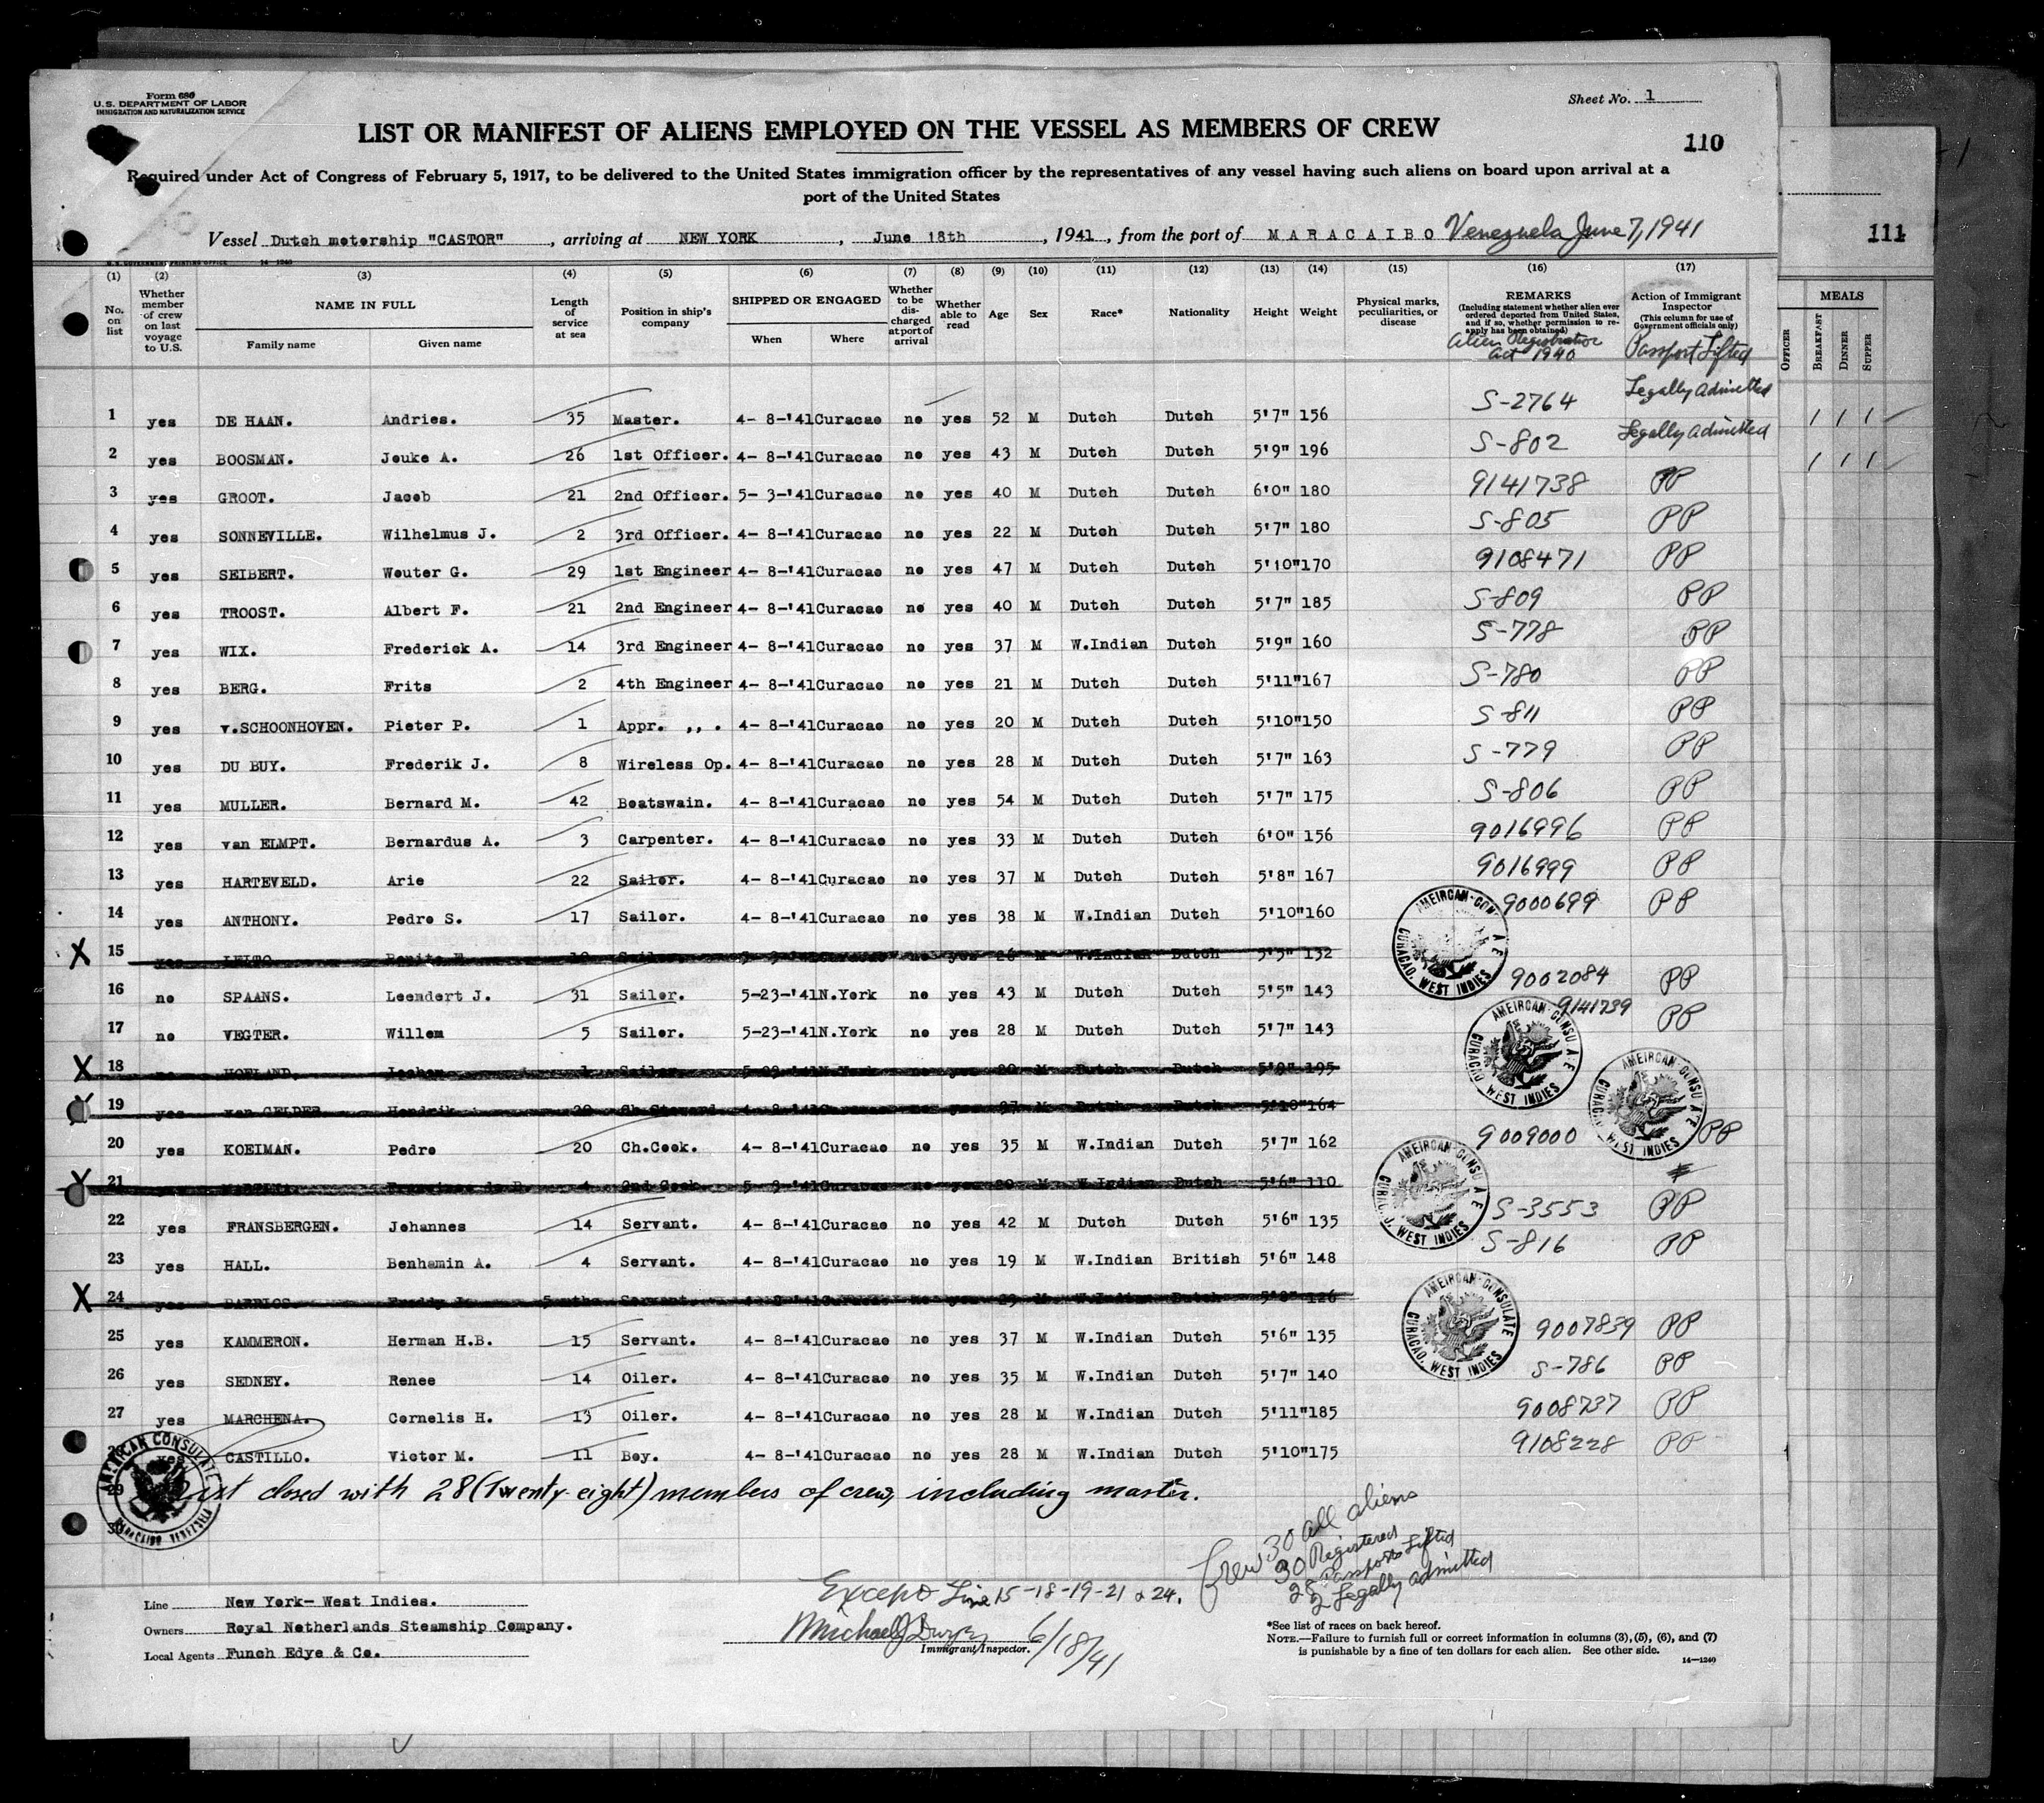 Form 680
U.S. DEPARTMENT OF LABOR
IMMIGRATION AND NATURALIZATION SERVICE
Sheet No. 1
LIST OR MANIFEST OF ALIENS EMPLOYED ON THE VESSEL AS MEMBERS OF CREW
110
Required under Act of Congress of February 5, 1917, to be delivered to the United States immigration officer by the representatives of any vessel having such aliens on board upon arrival at a
port of the United States
Vessel Dutch motorship "CASTOR", arriving at NEW YORK, June 18th, 1941, from the port of MARACAIBO Venezuela June 7, 1941
111
(1) (2) (3) (4) (5) (6) (7) (8) (9) (10) (11) (12) (13) (14) (15) (16) (17)
No. on list
Whether member of crew on last voyage to U.S.
NAME IN FULL
Family name Given name
Length of service at sea
Position in ship's company
SHIPPED OR ENGAGED
When Where
Whether to be discharged at port of arrival
Whether able to read
Age
Sex
Race*
Nationality
Height
Weight
Physical marks, peculiarities, or disease
REMARKS
(Including statement whether alien ever ordered deported from United States, and if so, whether permission to re-apply has been obtained)
Alien Registration Act 1940
Action of Immigrant Inspector
(This column for use of Government officials only)
Passport Lifted
MEALS
OFFICER BREAKFAST DINNER SUPPER
1 yes DE HAAN. Andries. 35 Master. 4- 8-'41 Curacao no yes 52 M Dutch Dutch 5'7" 156 S-2764 Legally Admitted
2 yes BOOSMAN. Jouke A. 26 1st Officer. 4- 8-'41 Curacao no yes 43 M Dutch Dutch 5'9" 196 S-802 Legally Admitted
3 yes GROOT. Jacob 21 2nd Officer. 5- 3-'41 Curacao no yes 40 M Dutch Dutch 6'0" 180 9141738 PP
4 yes SONNEVILLE. Wilhelmus J. 2 3rd Officer. 4- 8-'41 Curacao no yes 22 M Dutch Dutch 5'7" 180 S-805 PP
5 yes SEIBERT. Wouter G. 29 1st Engineer 4- 8-'41 Curacao no yes 47 M Dutch Dutch 5'10" 170 9108471 PP
6 yes TROOST. Albert F. 21 2nd Engineer 4- 8-'41 Curacao no yes 40 M Dutch Dutch 5'7" 185 S-809 PP
7 yes WIX. Frederick A. 14 3rd Engineer 4- 8-'41 Curacao no yes 37 M W.Indian Dutch 5'9" 160 S-778 PP
8 yes BERG. Frits 2 4th Engineer 4- 8-'41 Curacao no yes 21 M Dutch Dutch 5'11" 167 S-780 PP
9 yes v.SCHOONHOVEN. Pieter P. 1 Appr. ,, . 4- 8-'41 Curacao no yes 20 M Dutch Dutch 5'10" 150 S-811 PP
10 yes DU BUY. Frederik J. 8 Wireless Op. 4- 8-'41 Curacao no yes 28 M Dutch Dutch 5'7" 163 S-779 PP
11 yes MULLER. Bernard M. 42 Boatswain. 4- 8-'41 Curacao no yes 54 M Dutch Dutch 5'7" 175 S-806 PP
12 yes van ELMPT. Bernardus A. 3 Carpenter. 4- 8-'41 Curacao no yes 33 M Dutch Dutch 6'0" 156 9016996 PP
13 yes HARTEVELD. Arie 22 Sailor. 4- 8-'41 Curacao no yes 37 M Dutch Dutch 5'8" 167 9016999 PP
14 yes ANTHONY. Pedro S. 17 Sailor. 4- 8-'41 Curacao no yes 38 M W.Indian Dutch 5'10" 160 9000699 PP
X 15 yes LEITO. Sailor. no yes 26 M W.Indian Dutch 5'5" 132
16 no SPAANS. Leendert J. 31 Sailor. 5-23-'41 N.York no yes 43 M Dutch Dutch 5'5" 143 9002084 PP
17 no VEGTER. Willem 5 Sailor. 5-23-'41 N.York no yes 28 M Dutch Dutch 5'7" 143 9141739 PP
X 18 no HOFLAND. 1 Sailor. 5-23-'41 N.York no yes M Dutch Dutch 5'9" 195
X 19 yes van GELDER. Hendrik Ch.Steward 4- 8-'41 Curacao no yes M Dutch Dutch 5'10" 164
20 yes KOEIMAN. Pedro 20 Ch.Cook. 4- 8-'41 Curacao no yes 35 M W.Indian Dutch 5'7" 162 9009000 PP
X 21 4 2nd Cook. 5- 3-'41 Curacao no yes M W.Indian Dutch 5'6" 110
22 yes FRANSBERGEN. Johannes 14 Servant. 4- 8-'41 Curacao no yes 42 M Dutch Dutch 5'6" 135 S-3553 PP
23 yes HALL. Benhamin A. 4 Servant. 4- 8-'41 Curacao no yes 19 M W.Indian British 5'6" 148 S-816 PP
X 24 yes BARRIOS. Freddy Servant. 4- 8-'41 Curacao no yes M W.Indian Dutch 126
25 yes KAMMERON. Herman H.B. 15 Servant. 4- 8-'41 Curacao no yes 37 M W.Indian Dutch 5'6" 135 9007839 PP
26 yes SEDNEY. Renee 14 Oiler. 4- 8-'41 Curacao no yes 35 M W.Indian Dutch 5'7" 140 S-786 PP
27 yes MARCHENA. Cornelis H. 13 Oiler. 4- 8-'41 Curacao no yes 28 M W.Indian Dutch 5'11" 185 9008737 PP
yes CASTILLO. Victor M. 11 Boy. 4- 8-'41 Curacao no yes 28 M W.Indian Dutch 5'10" 175 9108228 PP
AMEIRCAN CONSULATE CURACAO, WEST INDIES
AMERICAN CONSULATE MARACAIBO VENEZUELA
29 List closed with 28 (Twenty eight) members of crew, including master.
30
Crew 30 all aliens
30 Registered
28 Passports Lifted
2 Legally admitted
Except Line 15-18-19-21 & 24.
Line New York- West Indies.
Owners Royal Netherlands Steamship Company.
Local Agents Funch Edye & Co.
Michael J Dwyer 6/18/41
Immigrant Inspector.
*See list of races on back hereof.
NOTE.—Failure to furnish full or correct information in columns (3), (5), (6), and (7)
is punishable by a fine of ten dollars for each alien. See other side.
14—1240